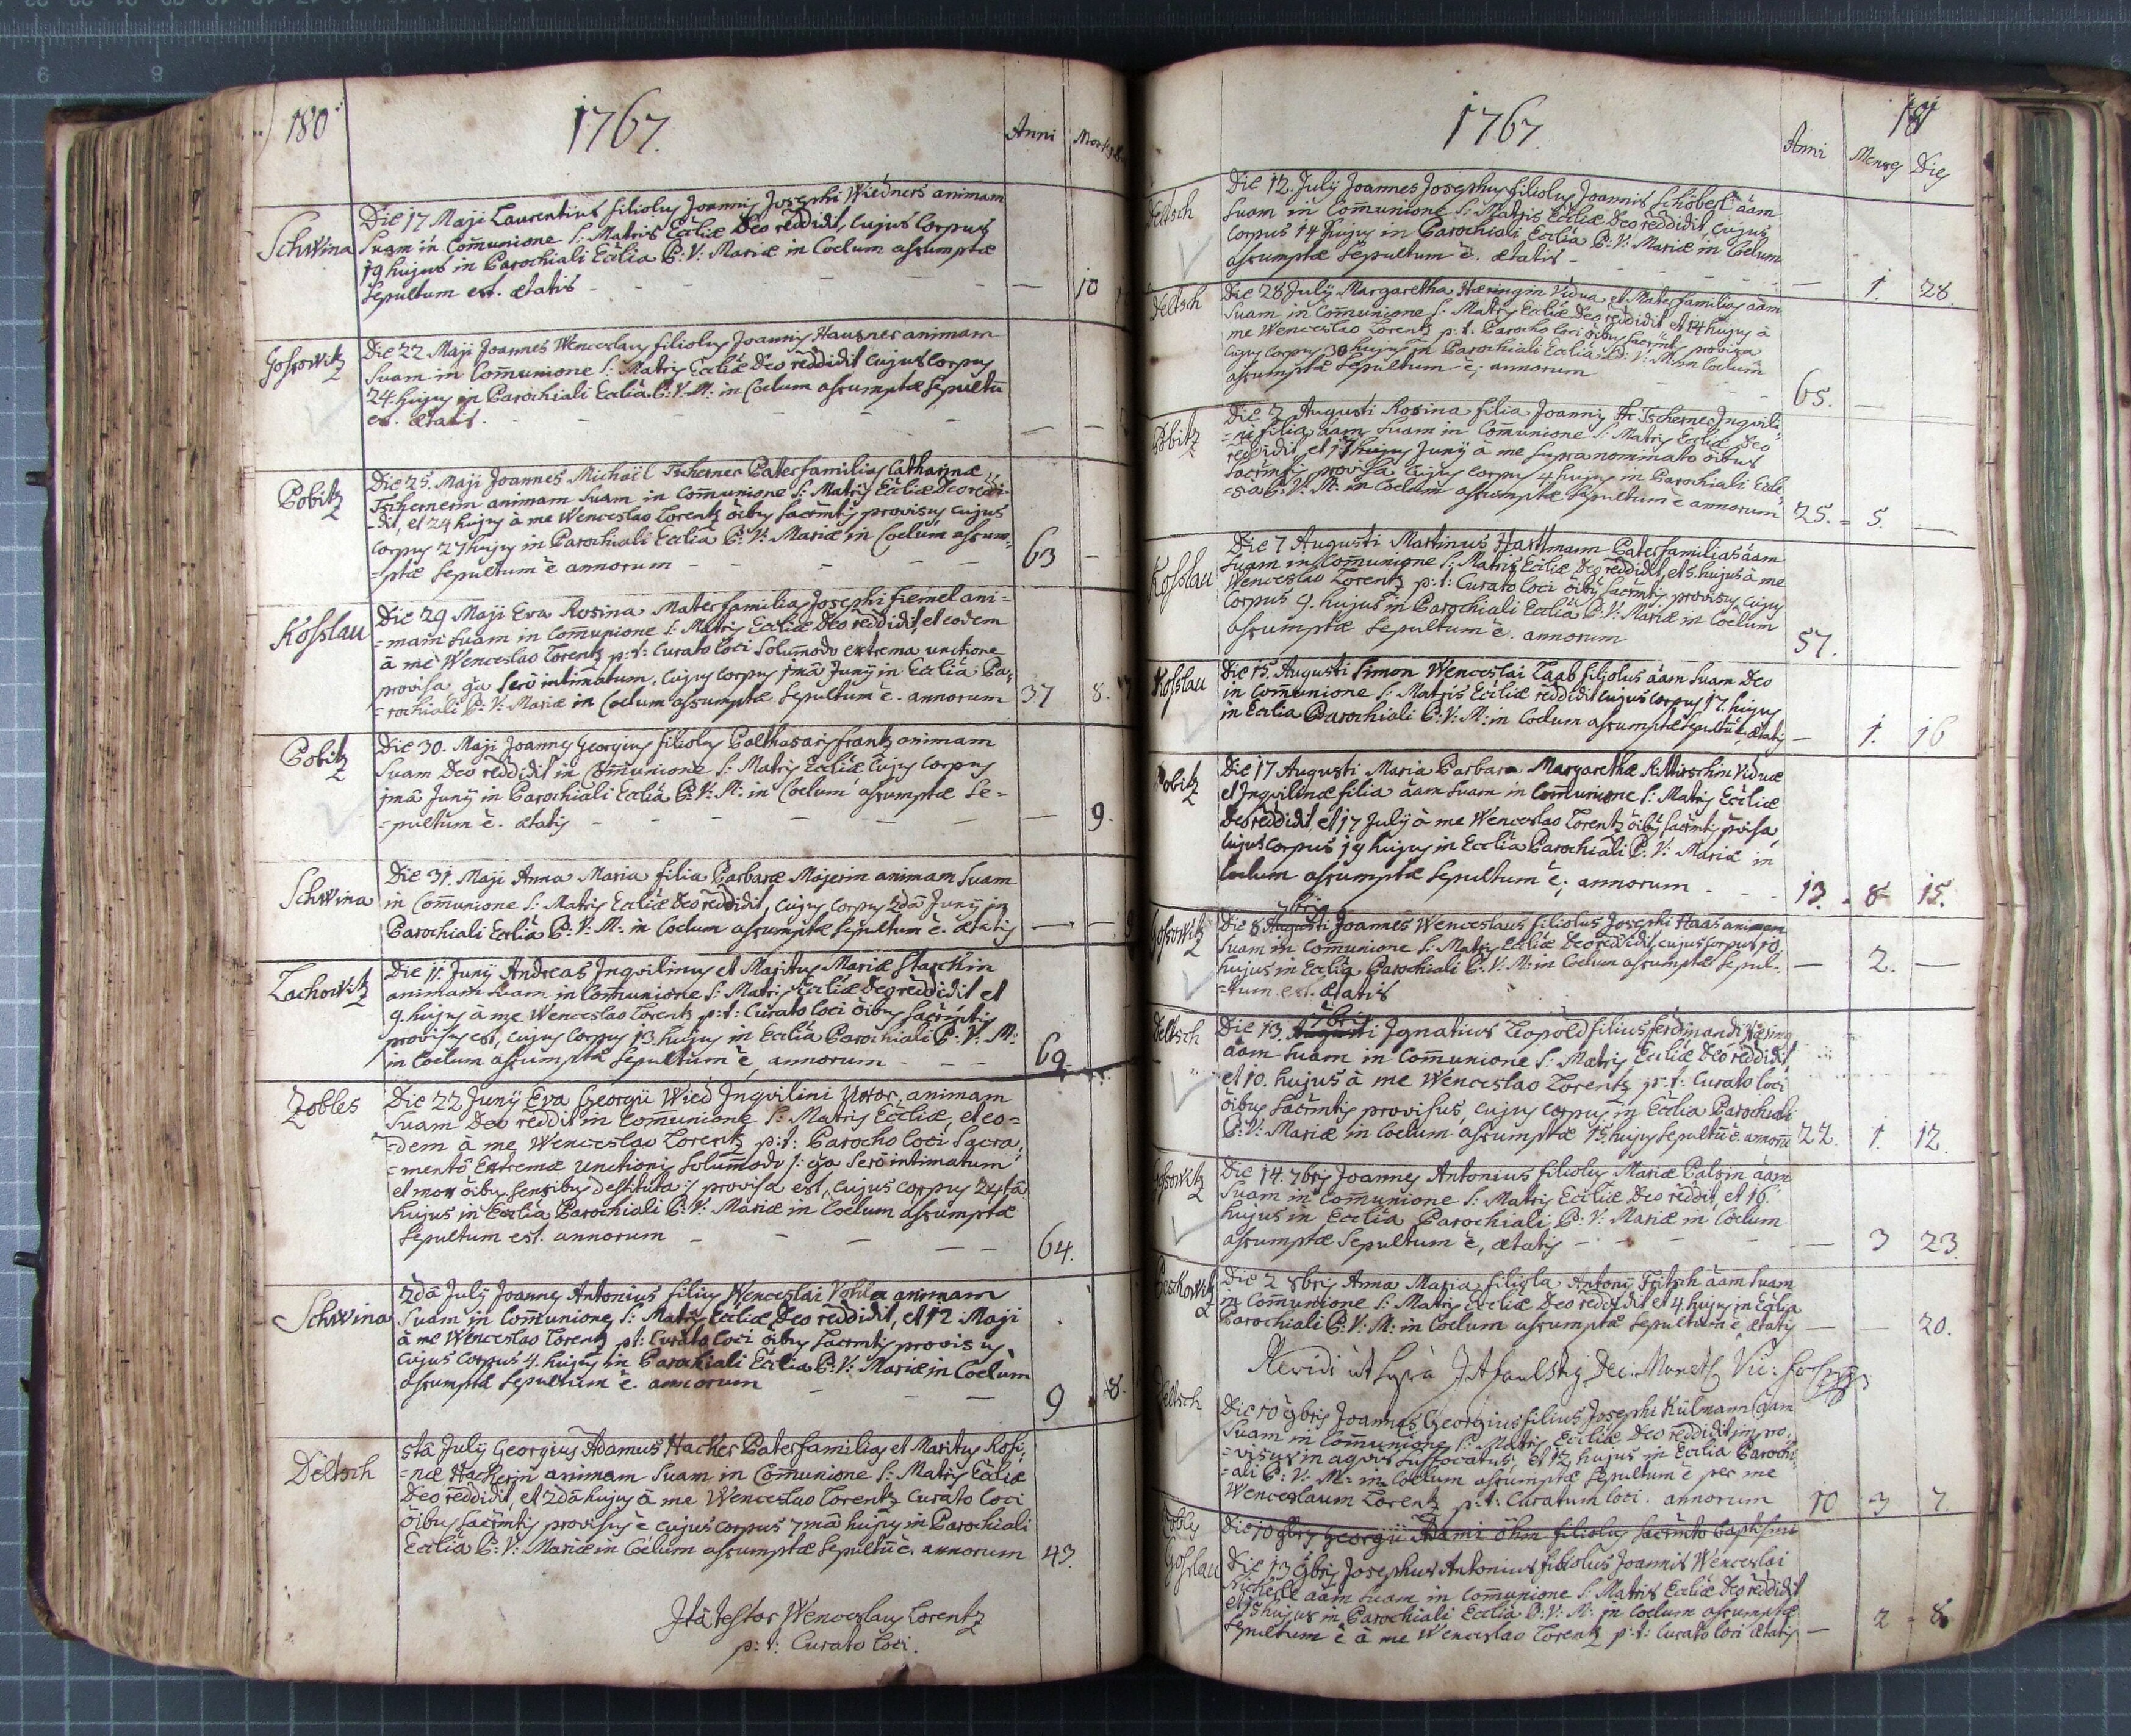 180
1767.
Anni
Schwina
Die 17 Maji Laurentius filiolus Joannis Josephi Wiedners animam
Suam in Com̄unione S: Matris Eccliæ Deo reddidit, cujus Corpus
19 hujus in Parochiali Ecclia B: V: Mariæ in Coelum assumptæ
Sepultum est. ætatis - - - - - — 10
Gossowitz
Die 22 Maji Joannes Wenceslaus filiolus Joannis Hausner animam
Suam in Com̄unione S: Matris Eccliæ Deo reddidit cujus Corpus
24. hujus in Parochiali Ecclia B: V: M: in Coelum assumptæ Sepultū
est. ætatis. - - - - — —
Pobitz
Die 25. Maji Joannes Michaël Tscherner Paterfamilias Catharinæ
Tschernerin animam Suam in Com̄unione S: Matris Eccliæ Deo reddi-
-dit, et 24 hujus à me Wenceslao Lorentz ōibus Sacr̄mtis provisus cujus
Corpus 27 hujus in Parochiali Ecclia B: V: Mariæ in Coelum assum-
=ptæ Sepultum ē annorum - - - - 63 —
Kosslau
Die 29 Maji Eva Rosina Materfamilias Josephi Fiemel ani=
=mam Suam in Com̄unione S: Matris Eccliæ Deo reddidit, et eodem
à me Wenceslao Lorentz p: t: Curato loci Solum̄odo extrema unctione
provisa q̄a Serò intimatum. Cujus Corpus 1mâ Junÿ in Ecclia Pa-
=rochiali B: V: Mariæ in Coelum assumptæ Sepultum ē. annorum 37 8.
Pobitz
Die 30. Maji Joannes Georgius filiolus Balthasaris Frantz animam
Suam Deo reddidit in Com̄unione S: Matris Eccliæ Cujus Corpus
1mâ Junÿ in Parochiali Ecclia B: V: M: in Coelum assumptæ Se-
=pultum ē. ætatis - - - - - — 9.
Schwina
Die 31. Maji Anna Maria filia Barbaræ Majerin animam Suam
in Com̄unione S: Matris Eccliæ Deo reddidit, cujus Corpus 2dâ Junÿ in
Parochiali Ecclia B: V: M: in Coelum assumptæ Sepultum ē. ætatis — —
Zachowitz
Die 11. Junÿ Andreas Inqvilinus et Maritus Mariæ Starckin
animam Suam in Com̄unione S: Matris Eccliæ Deo reddidit et
9 hujus a me Wenceslao Lorentz p: t: Curato loci ōibus Sacr̄mtis
provisus est, cujus Corpus 13. hujus in Ecclia Parochiali B: V: M:
in Coelum assumptæ Sepultum ē, annorum - - - 69
Zobles
Die 22 Junÿ Eva Georgii Wied Inqvilini Uxor, animam
Suam Deo reddit in Com̄unione S: Matris Eccliæ, et eo=
=dem à me Wenceslao Lorentz p: t: Parocho loci Sacra-
=mentô Extremæ Unctionis Solum̄odo /: q̄a Serò intimatum
et mox ōibus Sensibus destituta :/ provisa est, cujus Corpus 24tâ
hujus in Ecclia Parochiali B: V: Mariæ in Coelum assumptæ
Sepultum est. annorum - - - - - 64.
Schwina
2dâ July Joannes Antonius filius Wenceslai Vohla animam
Suam in Com̄unione S: Matris Eccliæ Deo reddidit, et 12 Maji
à me Wenceslao Lorentz p: t: Curato loci ōibus Sacrmtis provisus
cujus Corpus 4. hujus in Parochiali Ecclia B: V: Mariæ in Coelum
assumptæ Sepultum ē. annorum - - - 9 8.
Deltsch
5tâ July Georgius Adamus Hacker Paterfamilias et Maritus Rosi-
=næ Hackerin animam Suam in Com̄unione S: Matris Eccliæ
Deo reddidit, et 2dâ hujus à me Wenceslao Lorentz Curato loci
ōibus Sacr̄mtis provisus ē cujus Corpus 7mâ hujus in Parochiali
Ecclia B: V: Mariæ in Coelum assumptæ Sepultū ē. annorum 43.
Ità testor Wenceslaus Lorentz
p: t: Curato loci.
1767.
181
Anni Menses Dies
Deltsch
Die 12. July Joannes Josephus filiolus Joannis Schöberl āam
Suam in Com̄unione S: Matris Eccliæ Deo reddidit, cujus
Corpus 14 hujus in Parochiali Ecclia B: V: Mariæ in Coelum
assumptæ Sepultum ē. ætatis - — 1. 28.
Deltsch
Die 28 July Margaretha Hæringin Vidua et Materfamilias āam
Suam in Com̄unione S: Matris Eccliæ Deo reddidit et 14 hujus à
me Wenceslao Lorentz p: t: Parocho loci ōibus Sacr̄mtis provisa
cujus Corpus 30 hujus in Parochiali Ecclia B: V: M: in Coelum
assumptæ Sepultum ē; annorum 65. —
Pobitz
Die 2 Augusti Rosina filia Joannis Tscherner Inqvili-
=ni filia āam Suam in Com̄unione S: Matris Eccliæ Deo
reddidit, et 17 hujus Junÿ à me Supra nominato ōibus
Sacr̄mtis provisa cujus Corpus 4 hujus in Parochiali Eccle-
=sia B: V: M: in Coelum assumptæ Sepultum ē annorum 25. = 5. —
Kosslau
Die 7 Augusti Martinus Harttmann Paterfamilias āam
Suam in Com̄unione S: Matris Eccliæ Deo reddidit, et 5. hujus à me
Wenceslao Lorentz p: t: Curato loci ōibus Sacr̄mtis provisus, cujus
Corpus 9. hujus in Parochiali Ecclia B: V: Mariæ in Coelum
assumptæ Sepultum ē. annorum 57.
Kosslau
Die 15. Augusti Simon Wenceslai Laab filiolus āam Suam Deo
in Com̄unione S: Matris Eccliæ reddidit cujus Corpus 17. hujus
in Ecclia Parochiali B: V: M: in Coelum assumptæ Sepultū ē ætatis — 1. 16
Pobitz
Die 17 Augusti Maria Barbara Margarethæ Rittirschin Viduæ
et Inqvilinæ filia āam Suam in Com̄unione S: Matris Eccliæ
Deo reddidit, et 17 July à me Wenceslao Lorentz ōibus Sacr̄mtis p̄visa,
cujus Corpus 19 hujus in Ecclia Parochiali B: V: Mariæ in
Coelum assumptæ Sepultum ē; annorum - - 13. = 8 15.
Gossowitz
7bris
Die 8 Augusti Joannes Wenceslaus filiolus Josephi Haas animam
Suam in Com̄unione S: Matris Eccliæ Deo reddidit, cujus Corpus 10
hujus in Ecclia Parochiali B: V: M: in Coelum assumptæ Sepul-
=tum est. ætatis — 2. —
Deltsch
7bris
Die 13. Augusti Ignatius Leopold filius Ferdinandi Häring
āam Suam in Com̄unione S: Matris Eccliæ Deo reddidit,
et 10. hujus à me Wenceslao Lorentz p: t: Curato loci
ōibus Sacr̄mtis provisus, cujus Corpus in Ecclia Parochiali
B: V: Mariæ in Coelum assumptæ 15 hujus Sepultū ē. annorū 22. 1. 12.
Gossowitz
Die 14. 7bris Joannes Antonius filiolus Mariæ Balgin āam
Suam in Com̄unione S: Matris Eccliæ Deo reddit, et 16.
hujus in Ecclia Parochiali B: V: Mariæ in Coelum
assumptæ Sepultum ē, ætatis - - - — 3 23.
Die 2 8bris Anna Maria filiola Antonÿ Fritsch āam Suam
in Com̄unione S: Matris Eccliæ Deo reddidit et 4. hujus in Ecclia
Parochiali B: V: M: in Coelum assumptæ Sepultum ē ætatis — 20.
Revidi ut Supra
Deltsch
Die 10 9bris Joannes Georgius filius Josephi Külmann āam
Suam in Com̄unione S: Matris Eccliæ Deo reddidit impro-
=visus in aqvis Suffocatus, et 12 hujus in Ecclia Parochi-
=ali B: V: M: in Coelum assumptæ Sepultum ē per me
Wenceslaum Lorentz p: t: Curatum loci. annorum 10 3 7.
Die 10 9bris Georgii Adami Öhm filiolus Sacr̄mto baptismi
Gosslau
Die 13 9bris Josephus Antonius filiolus Joannis Wenceslai
Nickerle āam Suam in Com̄unione S: Matris Eccliæ Deo reddidit
et 15 hujus in Parochiali Ecclia B: V: M: in Coelum assumptæ
Sepultum ē à me Wenceslao Lorentz p: t: Curato loci ætatis — 2 = 8